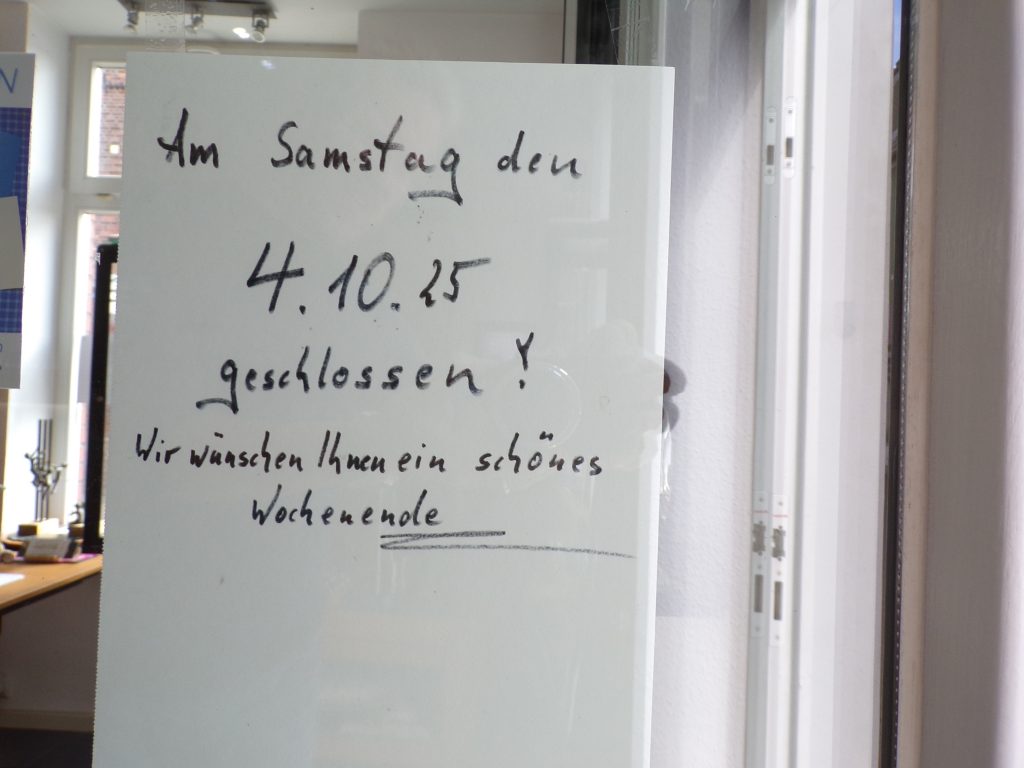 Am Samstag den
4.10.25
geschlossen!
Wir wünschen Ihnen ein schönes
Wochenende
N